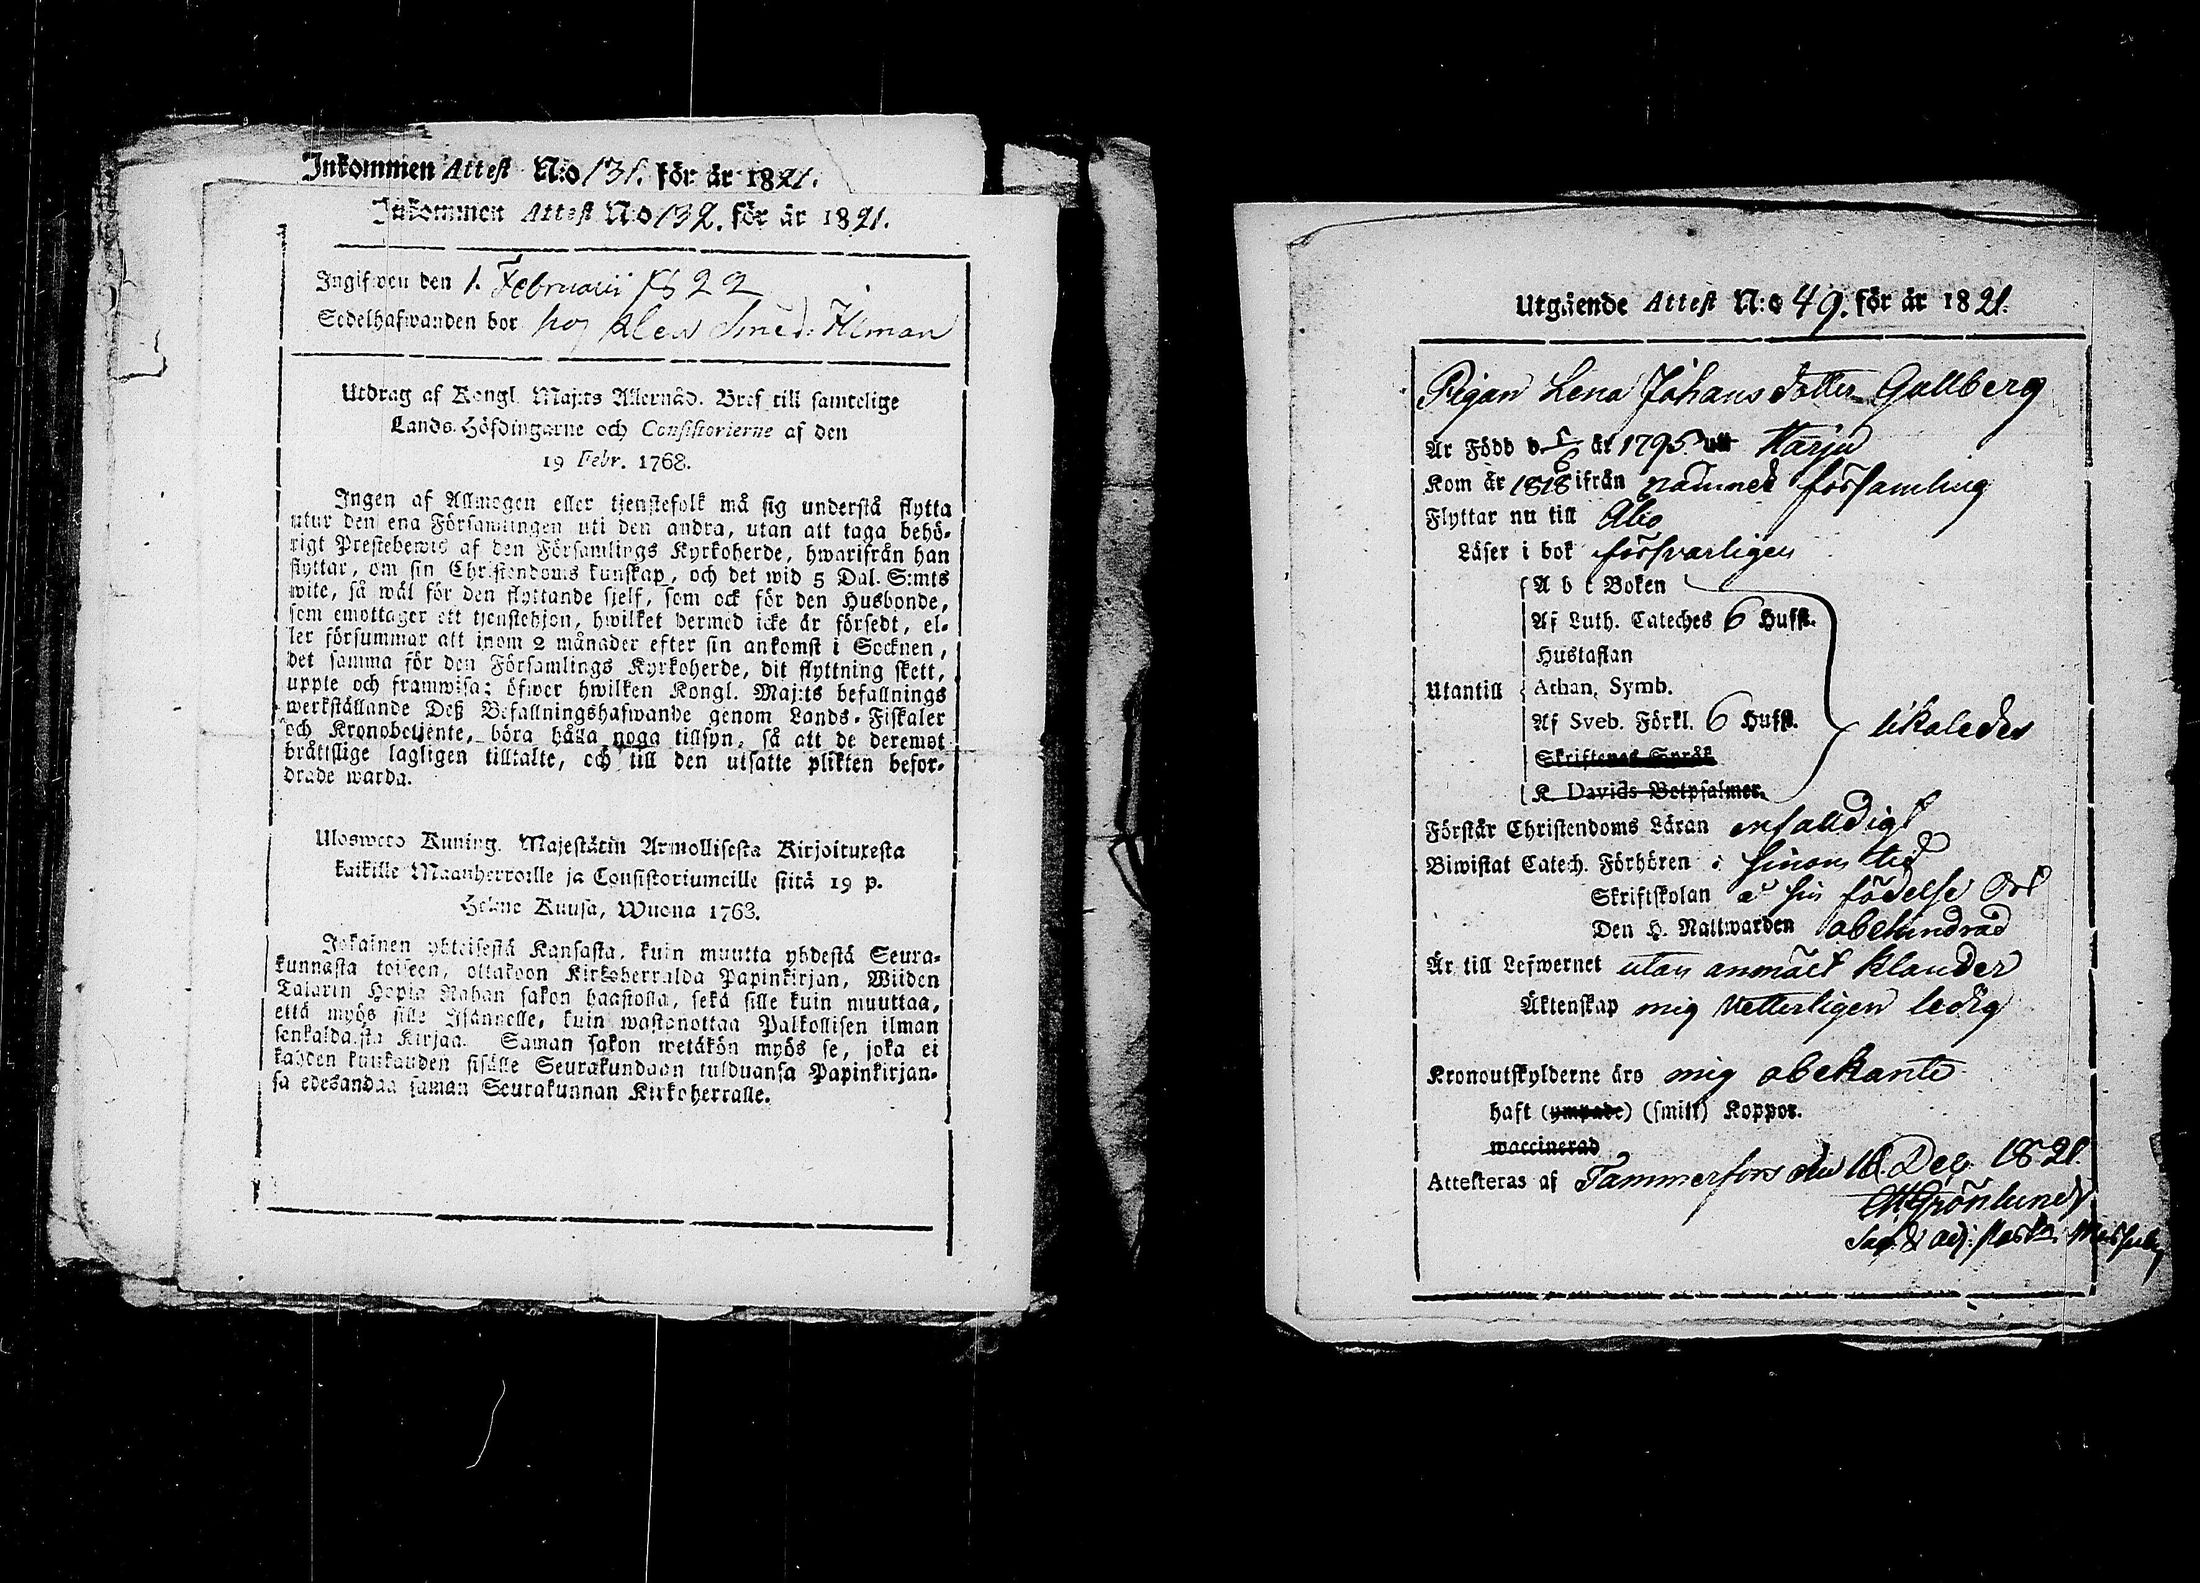 Inkommen Attest N:o 131. för år 1821.
Inkommen Attest N:o 132. för år 1821.
Ingifwen den 1. Februarii 1822
Sedelhafwanden bor hos Klen Smed: Ilman
Utdrag af Kongl. Maj:ts Allernåd. Bref till samtelige
Lands-Höfdingarne och Consistorierne af den
19 Febr. 1768.
Ingen af Allmogen eller tjenstefolk må sig understå flytta
utur den ena Församlingen uti den andra, utan att taga behö-
rigt Prestebewis af den Församlings Kyrkoherde, hwarifrån han
flyttar, om sin Christendoms kunskap, och det wid 5 Dal. S:mts
wite, så wäl för den flyttande sjelf, som ock för den Husbonde,
som emottager ett tjenstehjon, hwilket dermed icke är försedt, el-
ler försummar att inom 2 månader efter sin ankomst i Socknen,
det samma för den Församlings Kyrkoherde, dit flyttning skett,
uppte och framwisa; öfwer hwilken Kongl. Maj:ts befallnings
werkställande Deß Befallningshafwande genom Lands-Fiskaler
och Kronobetjente, böra hålla noga tillsyn, så att de deremot
bråttslige lagligen tilltalte, och till den utsatte plikten befor-
drade warda.
Uloswetö Kuning. Majestätin Armollisesta Kirjoituxesta
kaikille Maanherroille ja Consistoriumeille siitä 19 p.
Helme Kuusa, Wuona 1763.
Jokainen yhteisestä Kansasta, kuin muutta yhdestä Seura-
kunnasta toiseen, ottakoon Kirkoherralda Papinkirjan, Wiiden
Talarin Hopia Rahan sakon haastolla, sekä sille kuin muuttaa,
että myös sille Isännelle, kuin wastanottaa Palkollisen ilman
senkaldaista Kirjaa. Saman sakon wetäkön myös se, joka ei
kahden kuukauden sisälle Seurakundaan tulduansa Papinkirjan-
sa edesandaa saman Seurakunnan Kirkoherralle.
Utgående Attest N:o 49. för år 1821.
Pigan Lena Johans dotter Gallberg
Är Född d. 5/6 år 1795. uti Harju
Kom år 1818 ifrån nämnde församling
Flyttar nu till Åbo
Läser i bok försvarligen
A b c Boken
Af Luth. Cateches 6 Hufst.
Hustaflan
Utantill Athan. Symb.
Af Sveb. Förkl. 6 Hufst. likaledes
Skriftenes Språk
K. Davids Botpsalmer.
Förstår Christendoms Läran enfaldigt
Biwistat Catech. Förhören i sinom tid
Skriftskolan å sin födelse Ort
Den H. Nattwarden obehindrad
Är till Lefwernet utan anmält klander
Äktenskap mig vetterligen ledig
Kronoutskylderne äro mig obekante
haft (ympade) (smitt) Koppor.
waccinerad
Attesteras af Tammerfors den 18 Dec. 1821.
Grönlund